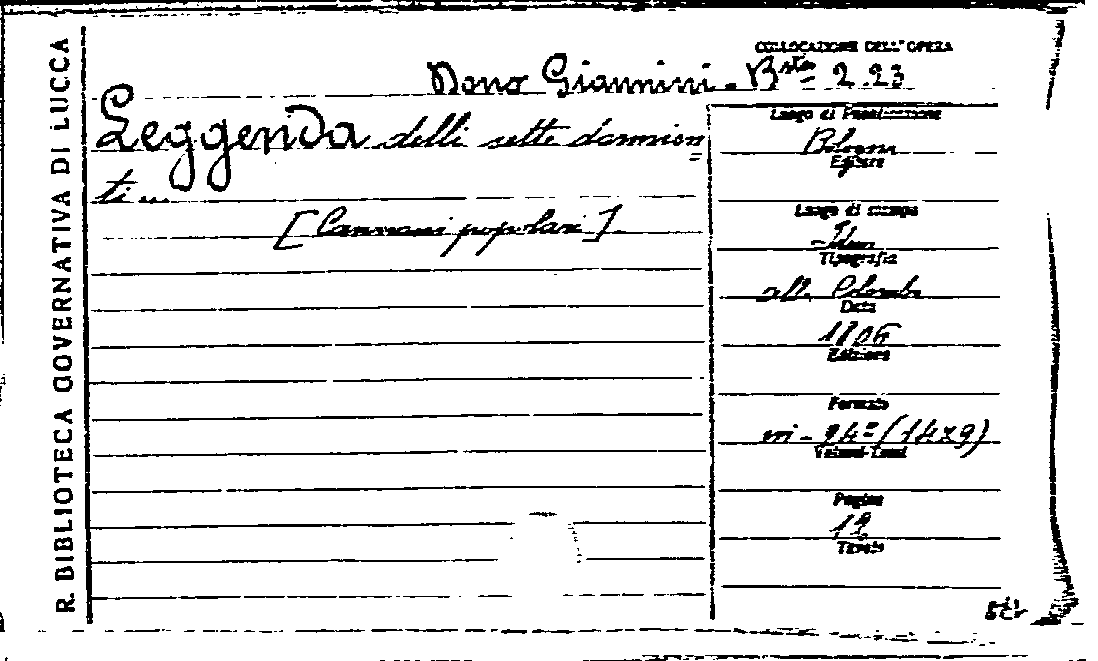 R. BIBLIOTECA GOVERNATIVA DI LUCCA
COLLOCAZIONE DELL'OPERA
Dono Giannini - Bsta 223
Leggenda delli sette dormien=
ti...
[Canzoni popolari]
Luogo di Pubblicazione
Bologna
Editore
Luogo di stampa
Idem
Tipografia
alla Colomba
Data
1806
Edizione
Formato
in-24º (14x9)
Volumi-Tomi
Pagine
12
Tavole